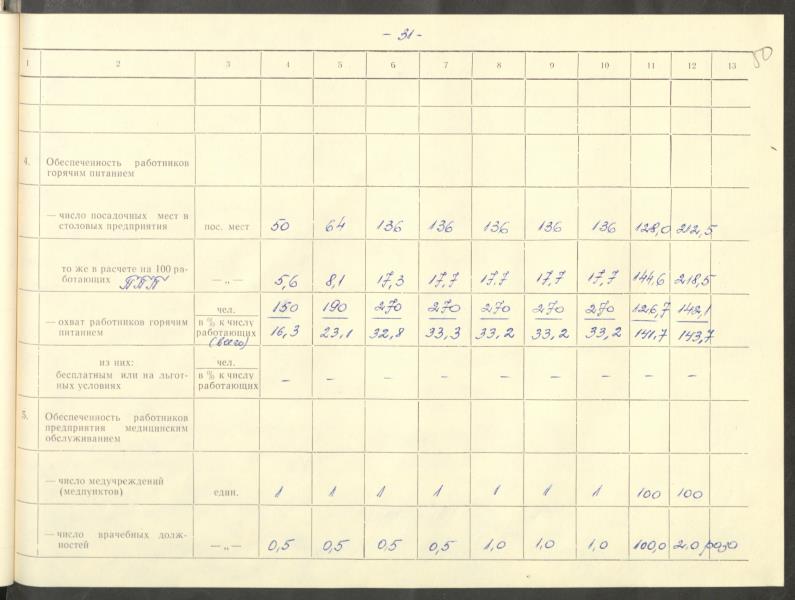 - 31 -
50
1 2 3 4 5 6 7 8 9 10 11 12 13
4. Обеспеченность работников
горячим питанием
— число посадочных мест в
столовых предприятия пос. мест 50 64 136 136 136 136 136 128,0 212,5
то же в расчете на 100 ра-
ботающих ППП —„— 5,6 8,1 17,3 17,7 17,7 17,7 17,7 144,6 218,5
чел. 150 190 270 270 270 270 270 126,7 142,1
— охват работников горячим
питанием
в % к числу
работающих 16,3 23,1 32,8 33,3 33,2 33,2 33,2 141,7 143,7
(всего)
из них:
бесплатным или на льгот-
ных условиях
чел.
в % к числу
работающих – – – – – – – – –
5. Обеспеченность работников
предприятия медицинским
обслуживанием
— число медучреждений
(медпунктов) един. 1 1 1 1 1 1 1 100 100
— число врачебных долж-
ностей —„— 0,5 0,5 0,5 0,5 1,0 1,0 1,0 100,0 2,0 раза